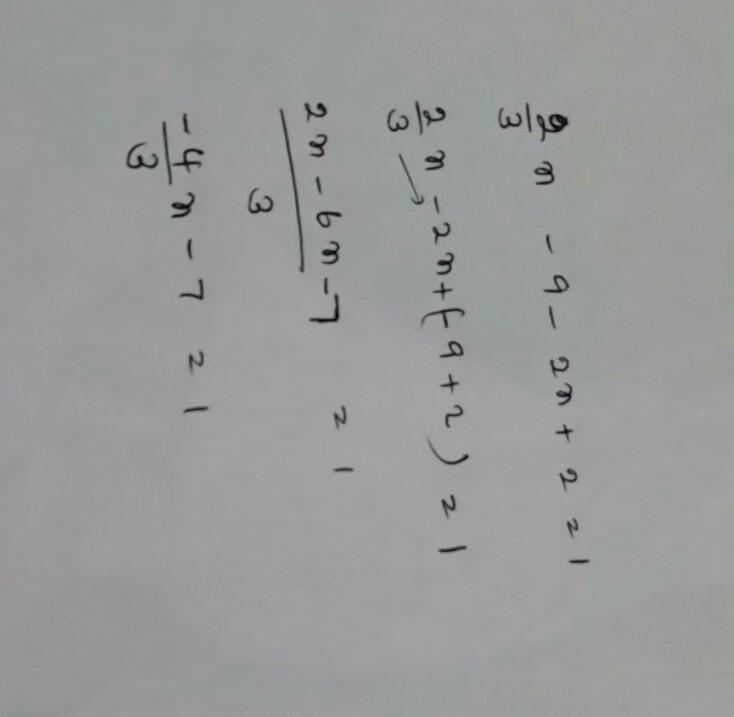 2/3 x - 9 - 2x + 2 = 1
2/3 x - 2x + (-9 + 2) = 1
(2x - 6x)/3 - 7 = 1
-4/3 x - 7 = 1